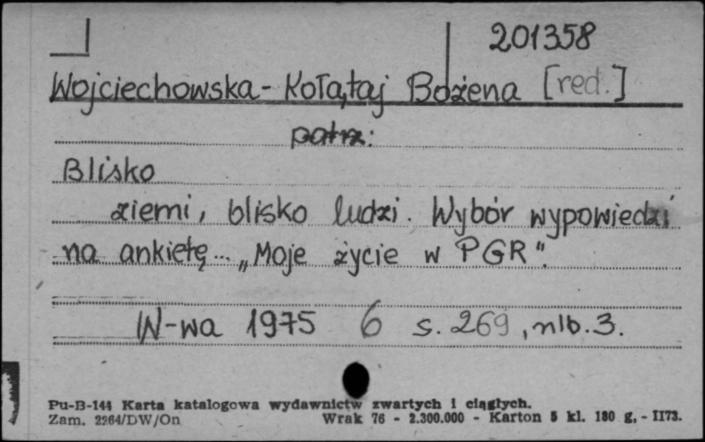 201358
Wojciechowska-Kołątaj Bożena [red.]
patrz:
Blisko
ziemi, blisko ludzi. Wybór wypowiedzi
na ankietę... „Moje życie w PGR".
W-wa 1975 6 s. 269, nlb. 3.
Pu-B-144 Karta katalogowa wydawnictw zwartych i ciągłych.
Zam. 2264/DW/On Wrak 76 - 2.300.000 - Karton 5 kl. 180 g. - II73.